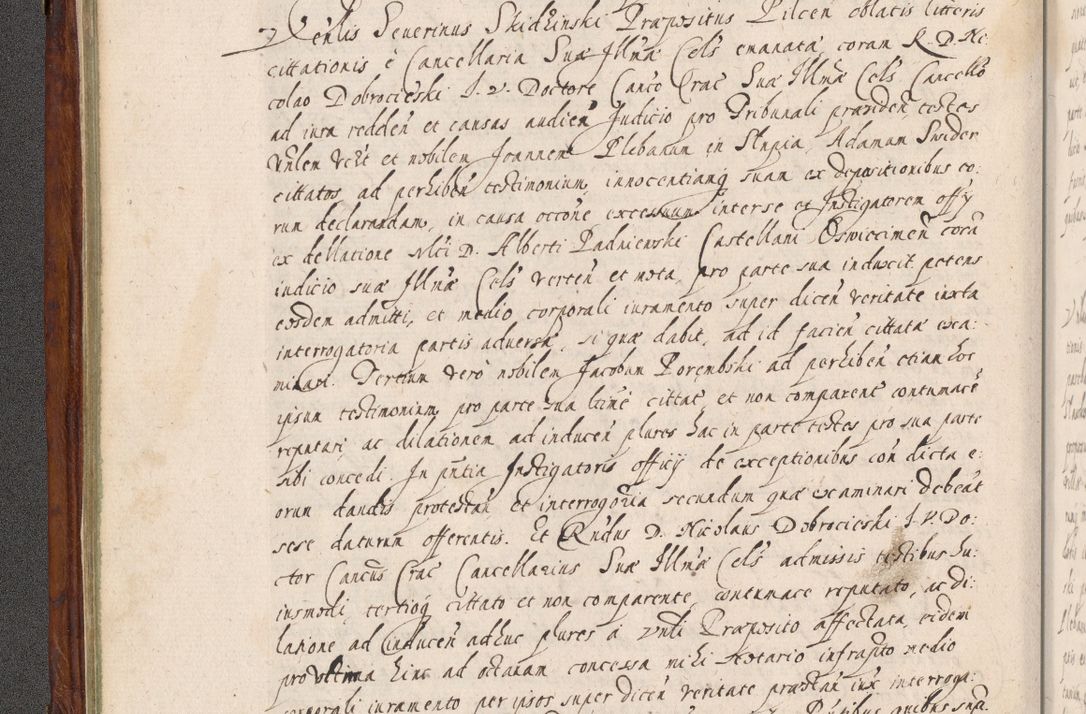 Venlis Severinus Skidzinski Præpositus Pilcen̄ oblatis litteris
cittationis è Cancellaria Suæ Illmæ Cels emanata, coram R. D. Ni
colao Dobrocieski I. V. Doctore Canco Crac Suæ Illmæ Cels Cancello
ad iura redden̄ et causas audien̄ Judicio pro Tribunali præsiden̄, testes
et nobilem Joannem Plebanum in Slupia, Adamum Swider
cittatos ad perhiben̄ testimonium, innocentiamq̄ suam ex depositionibus eo:
rum declarandam, in causa occōne excessuum inter se et Instigatorem offy
ex dellatione Mci D. Alberti Padniewski Castellani Oswiecimen̄ corā
iudicio suæ Illmæ Cels verten̄ et mota, pro parte sua induxit petens
eosdem admitti, et medio corporali iuramento super dicen̄ veritate iuxta
interrogatoria partis adversæ, si quæ dabit, ad id facien̄ cittata exa:
minari. Tertium verò nobilem Jacobum Porembski ad perhiben̄ etiam hoc
ipsum testimonium pro parte sua ltimè cittat̄ et non comparent̄ contumacē
reputari, ac dilationem ad inducen̄ plures hac in parte testes pro sua parte
sibi concedi. In pn̄tia Instigatoris officij de exceptionibus con̄ dicta e:
orum dandis protestan̄ et interrogoria secundum quæ examinari debeāt
sese daturum offerentis. Et Rndus D. Nicolaus Dobrocieski I. V. Do:
ctor Cancus Crac Cancellarius Suæ Illmæ Cels admissis testibus hu:
iusmodi, tertioq̄ cittato et non comparente, contumace reputato, ac di:
latione ad inducen̄ adhuc plures à Vnli Præposito affectata, eidem
pro ultima hinc ad octavam concessa mihi Notario infrapto medio
corporali iuramento per ipsos super dicen̄ veritate præstan̄ iux interroga: